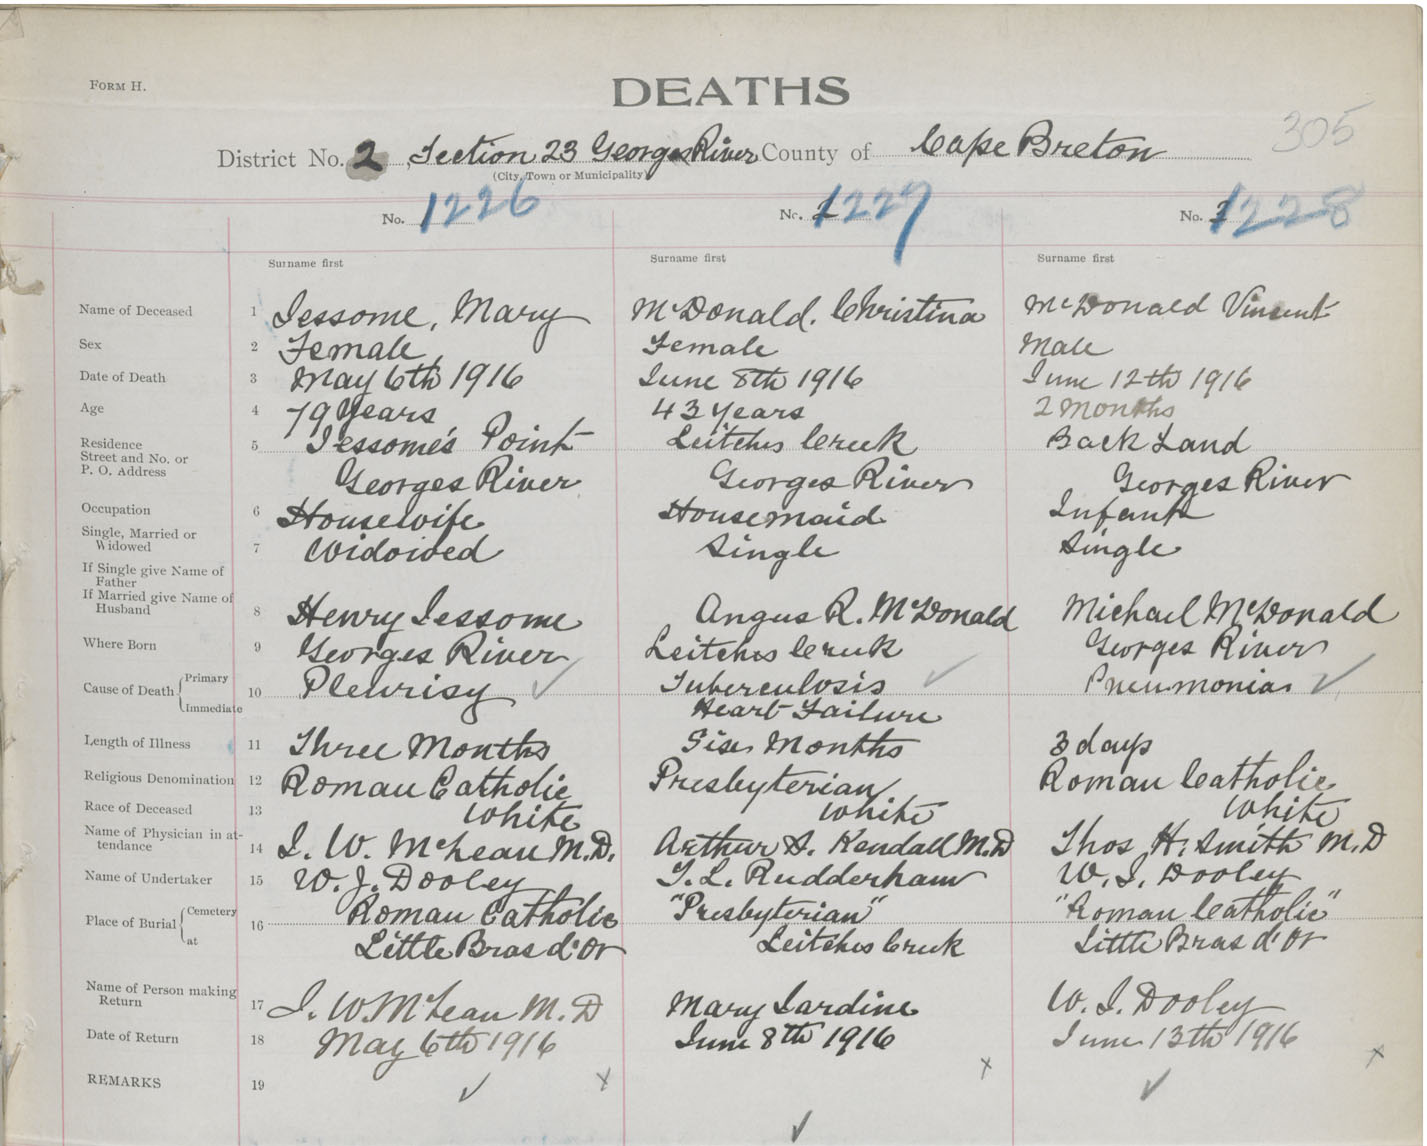 FORM H.
DEATHS
305
District No. 2, Section 23 Georges River County of Cape Breton
(City, Town or Municipality)
No. 1226 No. 1227 No. 1228
Surname first Surname first Surname first
Name of Deceased 1 Jessome, Mary McDonald, Christina McDonald Vincent
Sex 2 Female Female Male
Date of Death 3 May 6th 1916 June 8th 1916 June 12th 1916
Age 4 79 Years 43 Years 2 Months
Residence 5 Jessome's Point Leitches Creek Back Land
Street and No. or
P. O. Address Georges River Georges River Georges River
Occupation 6 Housewife Housemaid Infant
Single, Married or
Widowed 7 Widowed Single Single
If Single give Name of
Father
If Married give Name of
Husband 8 Henry Jessome Angus R. McDonald Michael McDonald
Where Born 9 Georges River Leitches Creek Georges River
Cause of Death Primary 10 Pleurisy Tuberculosis Pneumonia
Immediate Heart Failure
Length of Illness 11 Three Months Six Months 3 days
Religious Denomination 12 Roman Catholic Presbyterian Roman Catholic
Race of Deceased 13 White White White
Name of Physician in at-
tendance 14 J. W. McLean M.D. Arthur S. Kendall M.D Thos H. Smith M.D
Name of Undertaker 15 W. J. Dooley F. L. Rudderham W. J. Dooley
Place of Burial Cemetery 16 Roman Catholic "Presbyterian" "Roman Catholic"
at Little Bras d'Or Leitches Creek Little Bras d'Or
Name of Person making
Return 17 J. W. McLean M.D Mary Jardine W. J. Dooley
Date of Return 18 May 6th 1916 June 8th 1916 June 13th 1916
REMARKS 19